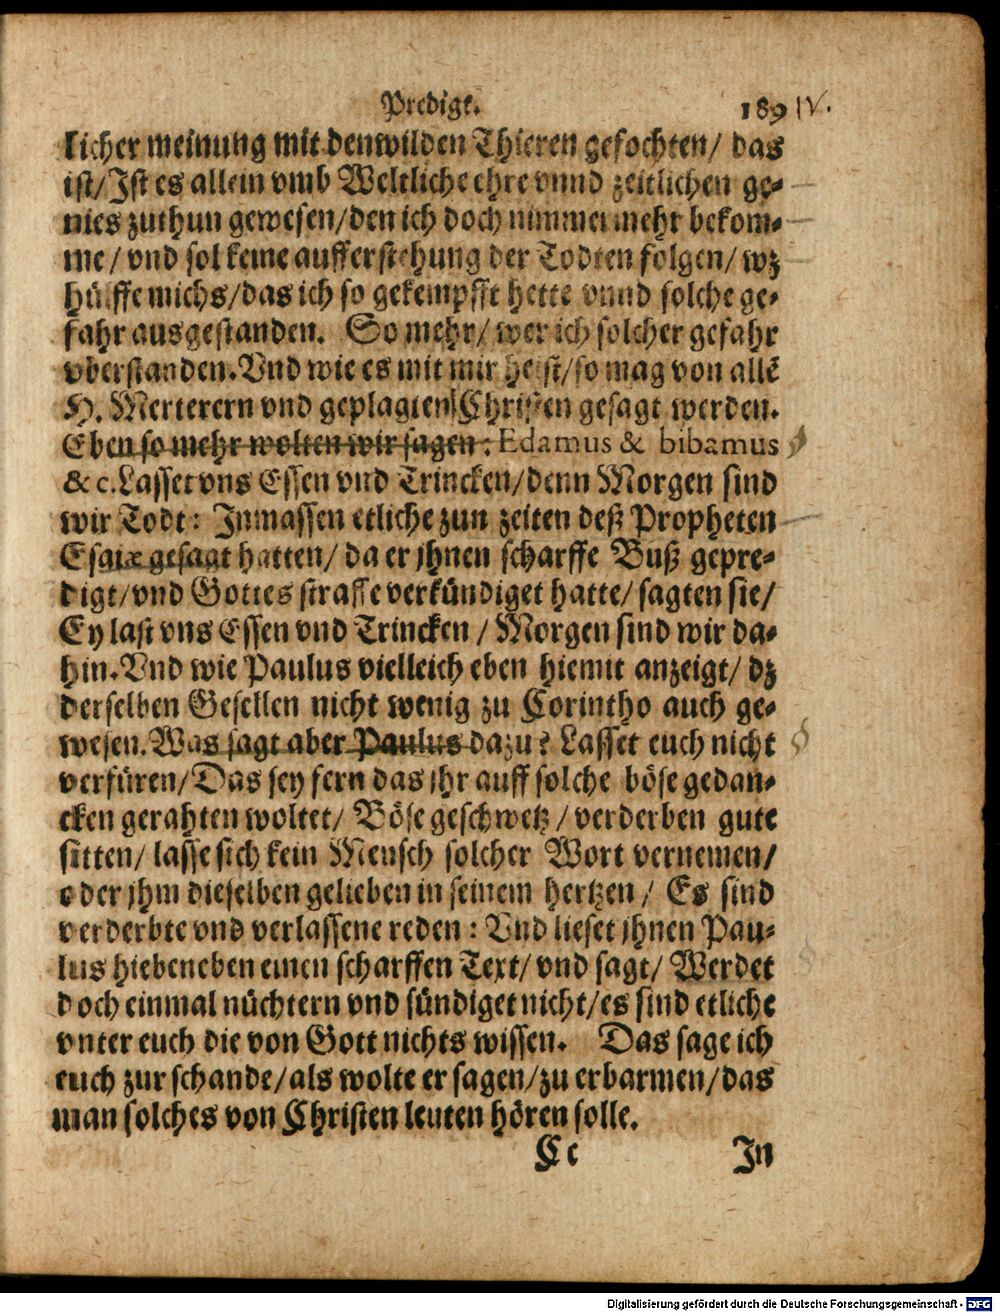 Predigt. 189 IV.
licher meinung mit den wilden Thieren gefochten/ das
ist/ Ist es allein vmb Weltliche ehre vnnd zeitlichen ge-
nies zuthun gewesen/ den ich doch nimmer mehr bekom-
me/ vnd sol keine aufferstehung der Todten folgen/ wz
hülffe michs/ das ich so gekempfft hette vnnd solche ge-
fahr ausgestanden. So mehr/ wer ich solcher gefahr
vberstanden. Vnd wie es mit mir heist/ so mag von allē
H. Merterern vnd geplagten Christen gesagt werden.
Eben so mehr wolten wir sagen: Edamus & bibamus
&c. Lasset vns Essen vnd Trincken/ denn Morgen sind
wir Todt: Inmassen etliche zun zeiten deß Propheten
Esaiæ gesagt hatten/ da er jhnen scharffe Buß gepre-
digt/ vnd Gottes straffe verkündiget hatte/ sagten sie/
Ey last vns Essen vnd Trincken / Morgen sind wir da-
hin. Vnd wie Paulus vielleich eben hiemit anzeigt/ dz
derselben Gesellen nicht wenig zu Corintho auch ge-
wesen. Was sagt aber Paulus dazu? Lasset euch nicht
verfüren/ Das sey fern das jhr auff solche böse gedan-
cken gerahten woltet/ Böse geschwetz / verderben gute
sitten/ lasse sich kein Mensch solcher Wort vernemen/
oder jhm dieselben gelieben in seinem hertzen / Es sind
verderbte vnd verlassene reden: Vnd lieset jhnen Pau-
lus hiebeneben einen scharffen Text/ vnd sagt/ Werdet
doch einmal nüchtern vnd sündiget nicht/ es sind etliche
vnter euch die von Gott nichts wissen. Das sage ich
euch zur schande/ als wolte er sagen/ zu erbarmen/ das
man solches von Christen leuten hören solle.
Cc In
Digitalisierung gefördert durch die Deutsche Forschungsgemeinschaft - DFG